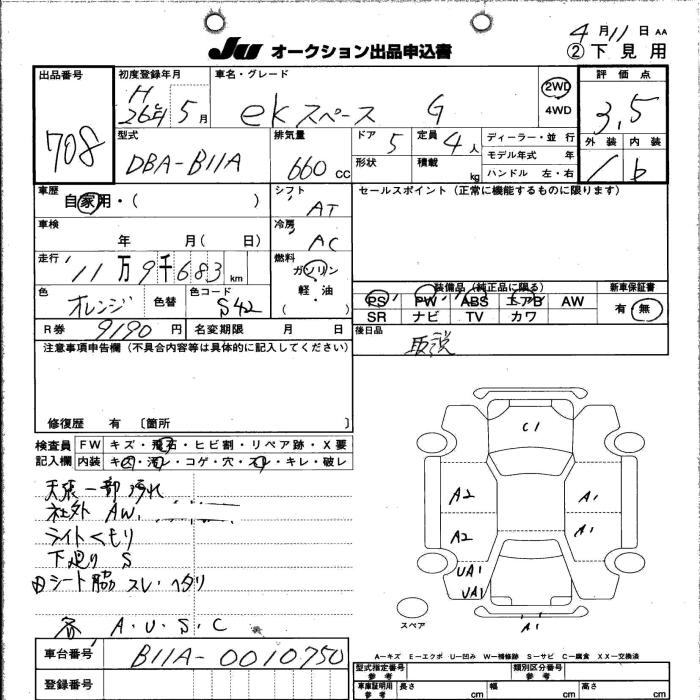 4月11日 AA
JU オークション出品申込書
②下見用
出品番号 初度登録年月 車名・グレード 評価点
708 H26年5月 ekスペース G 2WD 4WD 3.5
型式 排気量 ドア 定員 ディーラー・並行 外装 内装
DBA-B11A 660cc 5 4人 モデル年式 年
形状 積載 kg ハンドル 左・右 b
車歴 シフト セールスポイント(正常に機能するものに限ります)
自家用・( ) AT
車検 冷房
年 月( 日) AC
走行 燃料
11万9千683km ガソリン
軽・油
( )
色 色替 色コード 装備品(純正品に限る) 新車保証書
オレンジ S42 PS PW ABS エアB AW 有 無
SR ナビ TV カワ
R券 9190円 名変期限 月 日 後日品
取説
注意事項申告欄(不具合内容等は具体的に記入してください)
修復歴 有 〔箇所 〕
検査員 FW キズ・飛石・ヒビ割・リペア跡・X要
記入欄 内装 キズ・汚レ・コゲ・穴・スレ・キレ・破レ
天張一部汚れ
社外 AW.
ライトくもり
下廻り S
シート脇 スレ・ヘタリ
各 A・U・S・C
C1
A2 A1
A2 A1
UA1
UA1
A1
スペア
A-キズ E-エクボ U-凹み W-補修跡 S-サビ C-腐食 XX-交換済
車台番号 B11A-0010750
型式指定番号 参考 類別区分番号 参考
登録番号
車庫証明用 参考 長さ cm 幅 cm 高さ cm